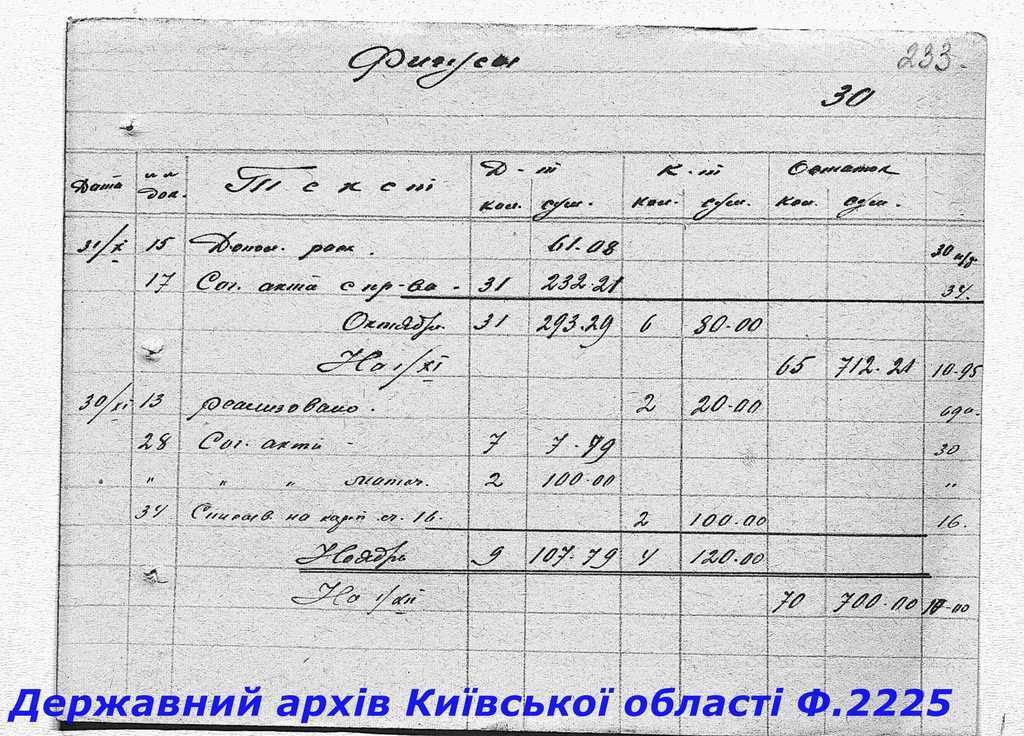 Фикусы
233.
30
Дата № № док. Текст Д-т К-т Остаток
кол. сум. кол. сум. кол. сум.
31/X 15 Допол. расх. 61-08 30 н/б
17 Сог. акта с пр-ва - 31 232-21 34.
Октябрь 31 293.29 6 80-00
На 1/XI 65 712-21 10-95
30/XI 13 реализовано. 2 20-00
28 Сог. акта - 7 7-79 30
" " " маточ. 2 100-00 "
34 Списав. на карт. сч. 16. 2 100.00 16.
Ноябрь 9 107-79 4 120-00
На 1/XII 70 700-00 10-00
Державний архів Київської області Ф.2225